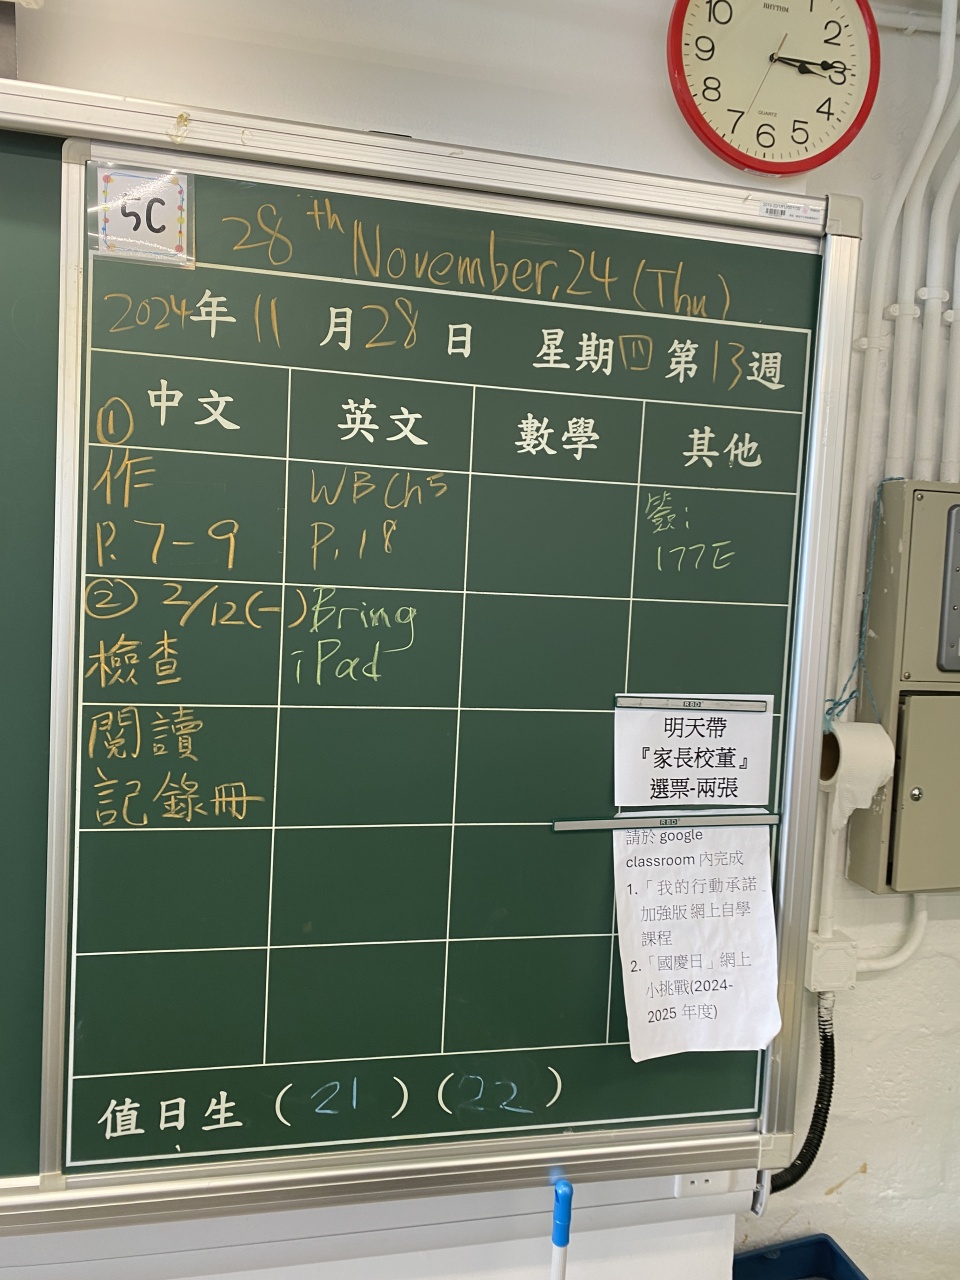 10
1
2
9
3
8
4
7
6
5
RHYTHM
QUARTZ
5C
28th November, 24 (Thu)
2024年 11 月 28 日 星期四 第 13 週
① 中文
英文
數學
其他
作
P. 7-9
WB Ch5
P. 18
簽:
177E
② 2/12(一)
檢查
Bring
iPad
閱讀
記錄冊
RBD
明天帶
『家長校董』
選票-兩張
RBD
請於 google
classroom 內完成
1.「我的行動承諾」
加強版網上自學
課程
2.「國慶日」網上
小挑戰(2024-
2025 年度)
值日生 (21) (22)